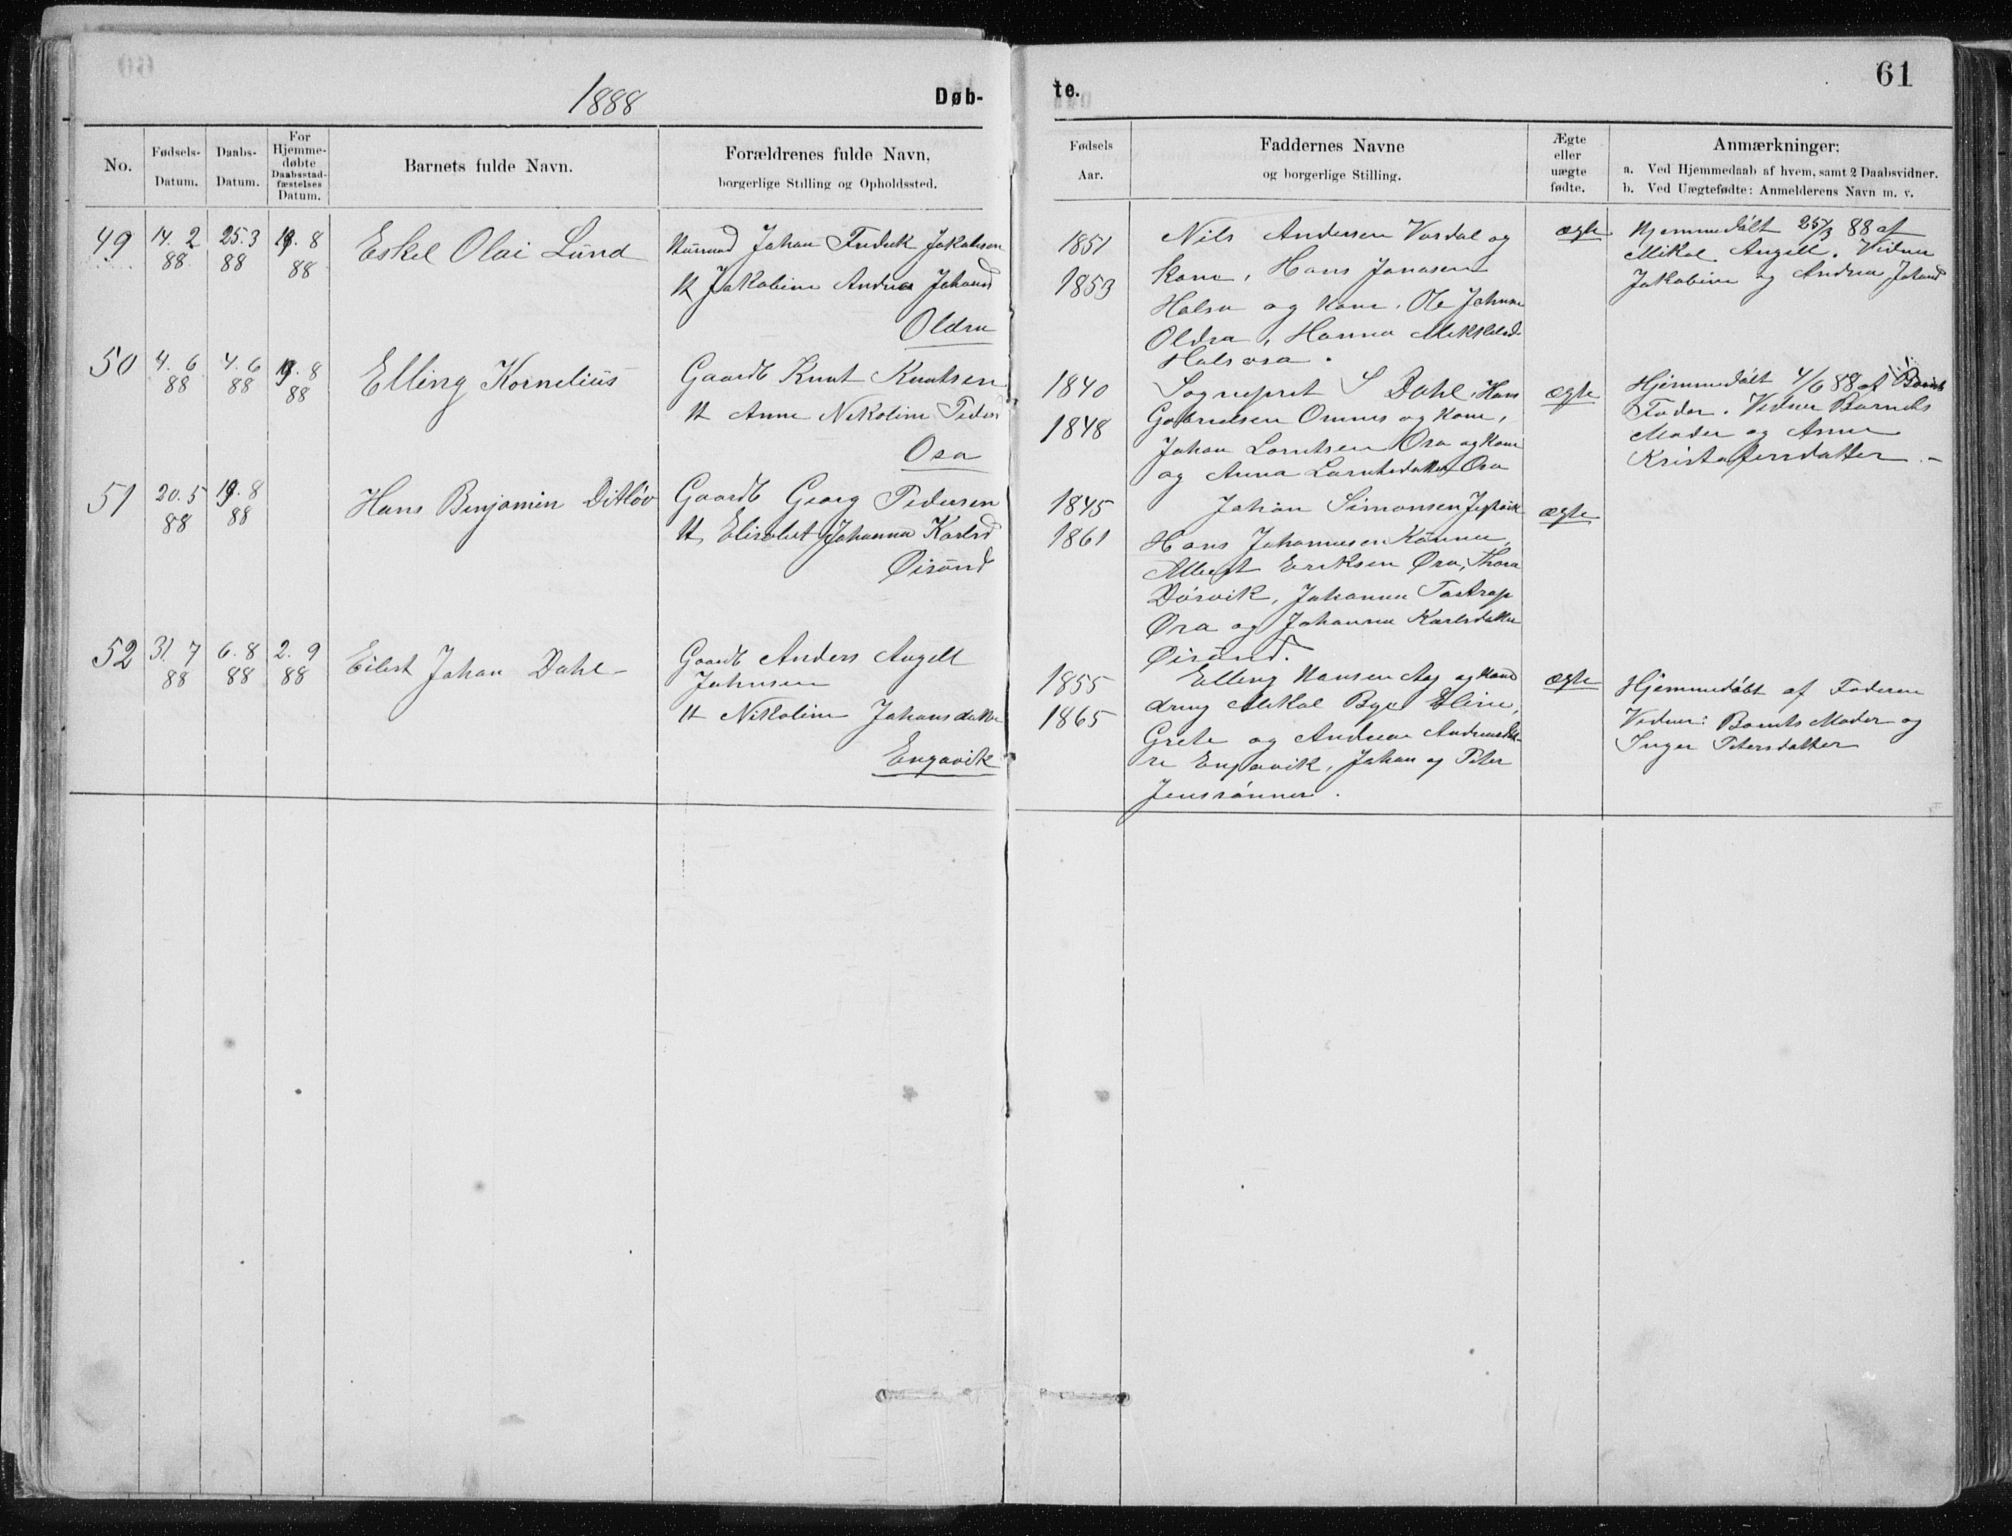 61
1888
Døb-
te.
No.
Fødsels-
Datum.
Daabs-
Datum.
For
Hjemme-
døbte
Daabsstad-
fæstelses
Datum.
Barnets fulde Navn.
Forældrenes fulde Navn,
borgerlige Stilling og Opholdssted.
Fødsels
Aar.
Faddernes Navne
og borgerlige Stilling.
Ægte
eller
uægte
fødte.
Anmærkninger:
a. Ved Hjemmedaab af hvem, samt 2 Daabsvidner.
b. Ved Uægtefødte: Anmelderens Navn m. v.
49
14. 2
88
25.3
88
19. 8
88
Eskel Olai Lund
Johan Fredrik Jakobsen
H Jakobine Andrea Johansd
Oldra
1851
1853
Nils Andersen Vardal og
Kone, Hans Jonasen
Halsa og Kone, Ole Johnsen
Oldra, Hanna Mikkelsd
Halsosa.
ægte
Hjemmedøbt 25/3 88 af
Mikal Angell. Vidner
Jakobine og Andrea Johansd
50
4. 6
88
4. 6
88
19. 8
88
Elling Kornelius
Gaardb Knut Knutsen
H Anne Nikoline Peders
Osa
1840
1848
Sognepret S Dahl, Hans
Gabrielsen Omnes og Kone,
Johan Larntsen Osa og Kone
og Anna Larntsdatter Osa
ægte
Hjemmedøbt 4/6 88 af Barnets
Fader. Vidner Barnets
Moder og Anne
Kristofersdatter. -
51
20. 5
88
19. 8
88
Hans Benjamin Ditløv
Gaardb Georg Pedersen
H, Elisabet Johanna Karlsd
Øisund
1845
1861
Johan Simonsen
Hans Johannesen
Albert Eriksen Øra, Thora
Dørvik, Johanna Tostrup
Øra og Johanna Karlsdatter
Øisund.
ægte
52
31. 7
88
6. 8
88
2. 9
88
Eilert Johan Dahl -
Gaardb Anders Angell
Johnsen
H Nikoline Johansdatter
Engavik
1855
1865
Elling Hansen Aag og Kone
dreng Mikal Bye Eline,
Grete og Andrea Andreasdat-
re Engavik, Johan og Peter
Jensrønner.
ægte
Hjemmedøbt af Faderen
Vidner: Barnets Moder og
Inger Petersdatter